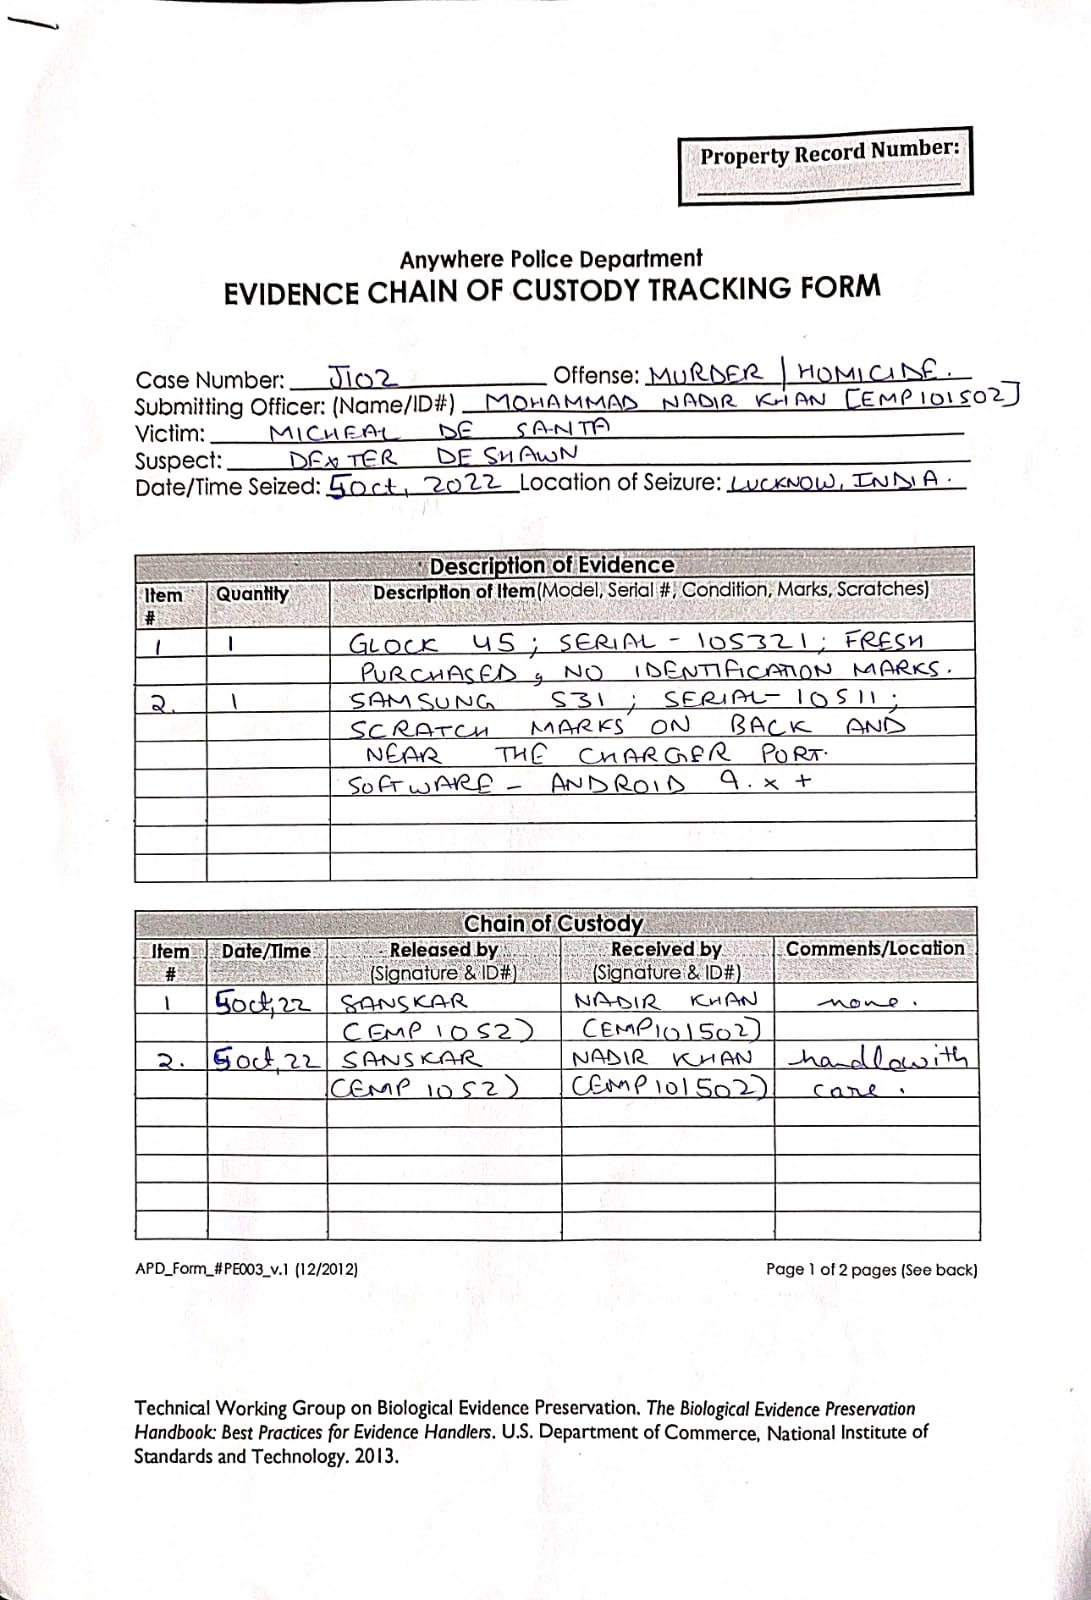 Property Record Number:
Anywhere Police Department
EVIDENCE CHAIN OF CUSTODY TRACKING FORM
Case Number: J102 Offense: MURDER | HOMICIDE.
Submitting Officer: (Name/ID#) MOHAMMAD NADIR KHAN [EMP101502]
Victim: MICHEAL DE SANTA
Suspect: DEXTER DE SHAWN
Date/Time Seized: 5 Oct, 2022 Location of Seizure: LUCKNOW, INDIA.
Description of Evidence
Item # Quantity Description of Item(Model, Serial #, Condition, Marks, Scratches)
1 1 GLOCK 45; SERIAL - 105321; FRESH
PURCHASED, NO IDENTIFICATION MARKS.
2. 1 SAMSUNG S31; SERIAL-10511;
SCRATCH MARKS ON BACK AND
NEAR THE CHARGER PORT.
SOFTWARE - ANDROID 9.x+
Chain of Custody
Item # Date/Time Released by (Signature & ID#) Received by (Signature & ID#) Comments/Location
1 5 oct, 22 SANSKAR NADIR KHAN none.
(EMP 1052) (EMP101502)
2. 5 oct, 22 SANSKAR NADIR KHAN handlowith
(EMP 1052) (EMP101502) care.
APD_Form_#PE003_v.1 (12/2012) Page 1 of 2 pages (See back)
Technical Working Group on Biological Evidence Preservation. The Biological Evidence Preservation
Handbook: Best Practices for Evidence Handlers. U.S. Department of Commerce, National Institute of
Standards and Technology. 2013.